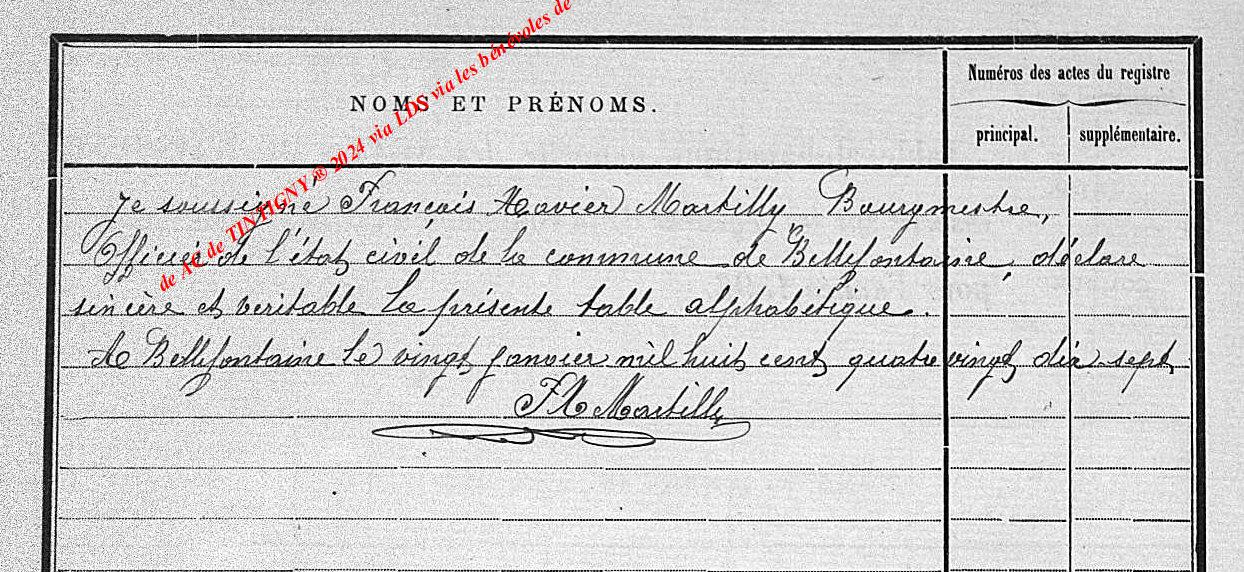 de AC de TINTIGNY ® 2024 via LDS via les bénévoles de
NOMS ET PRÉNOMS.
Numéros des actes du registre
principal.
supplémentaire.
Je soussigné François Xavier Martilly Bourgmestre,
Officier de l'état civil de la commune de Bellefontaine, déclare
sincère et veritable la présente table alphabétique.
A Bellefontaine le vingt janvier mil huit cent quatre vingt dix-sept
FX Martilly